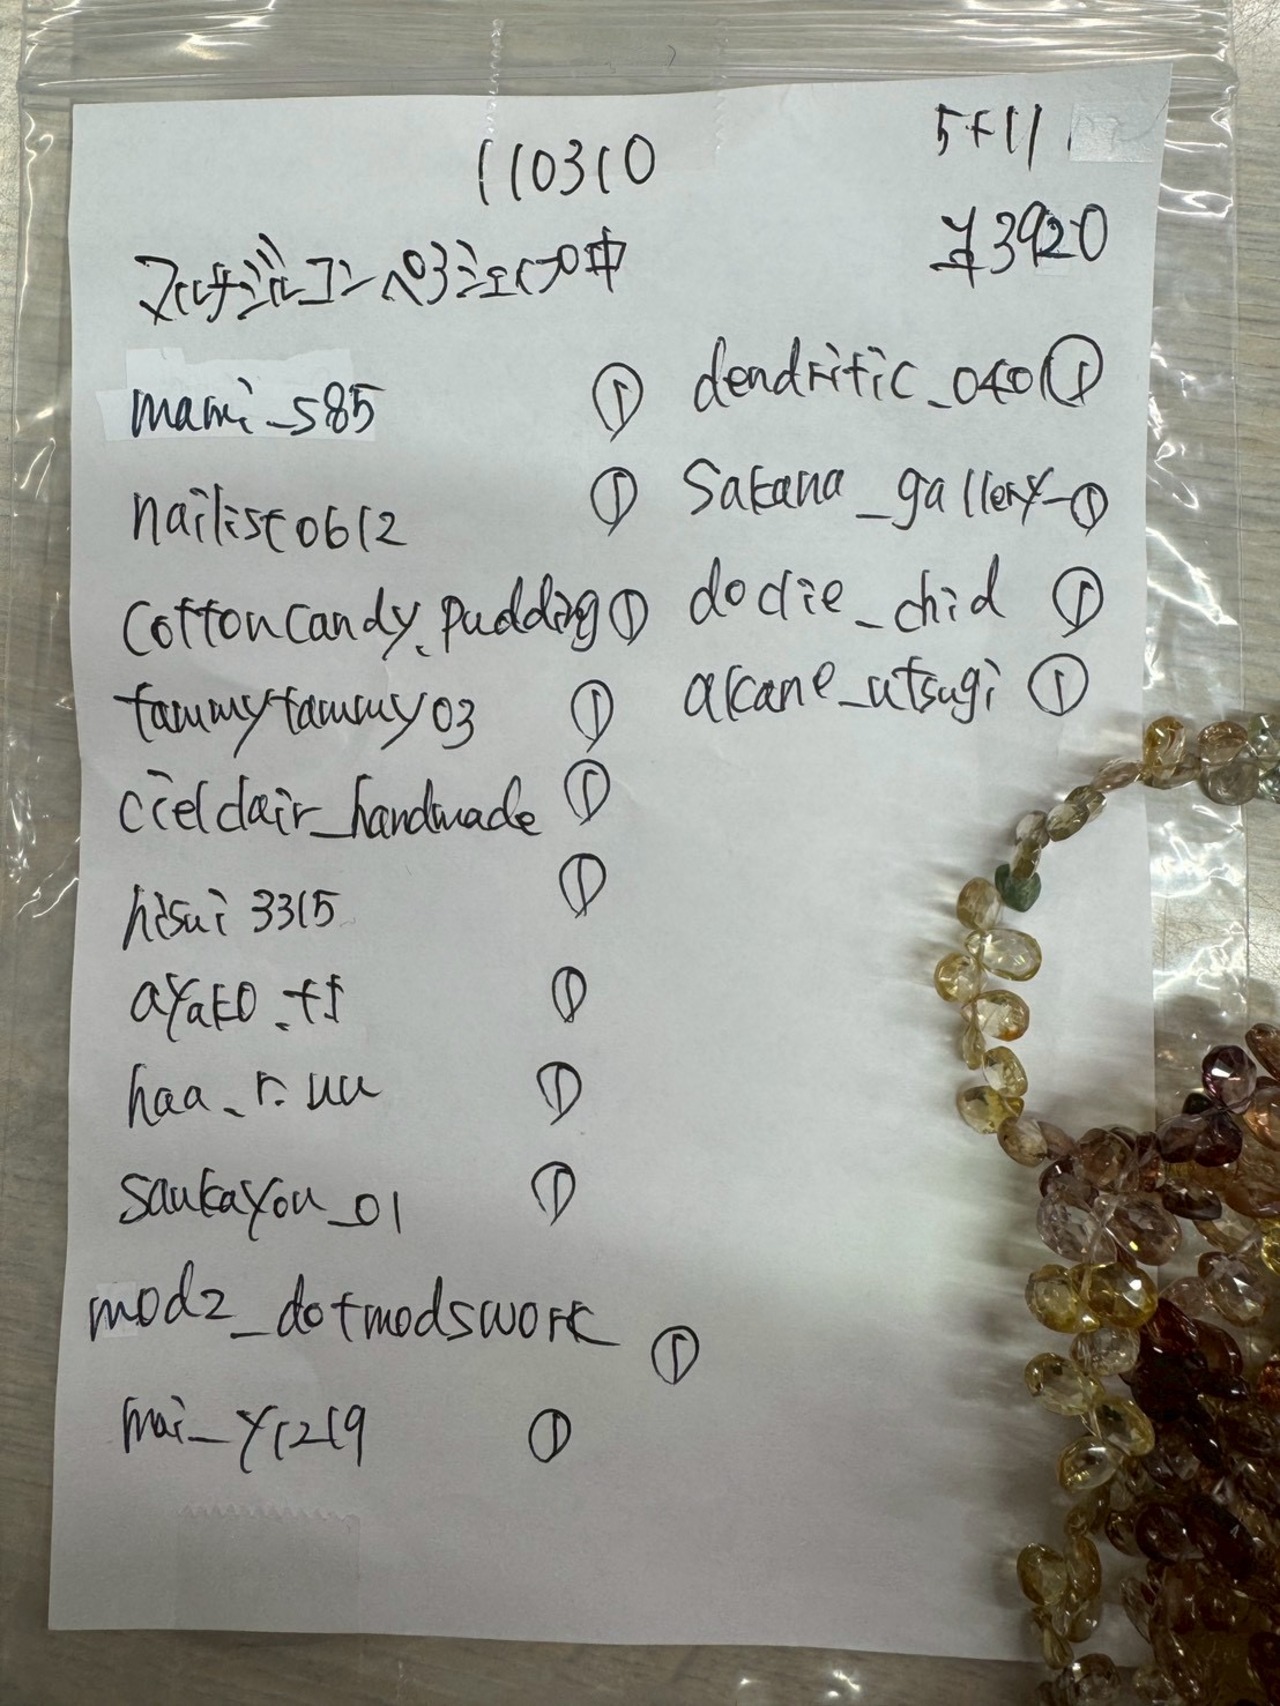 110310
5+11
¥3920
マルチジルコンペアシェイプ中
mami_s85 ①
nailist0612 ①
cottoncandy.pudding ①
tammytammy03 ①
cielclair_handmade ①
hisui3315 ①
ayako.ts ①
haa_r.uu ①
sankayou_01 ①
mod2_dotmodswork ①
mai_y1219 ①
dendritic_0401 ①
sakana_gallery_ ①
doclie_chid ①
akane_utsugi ①